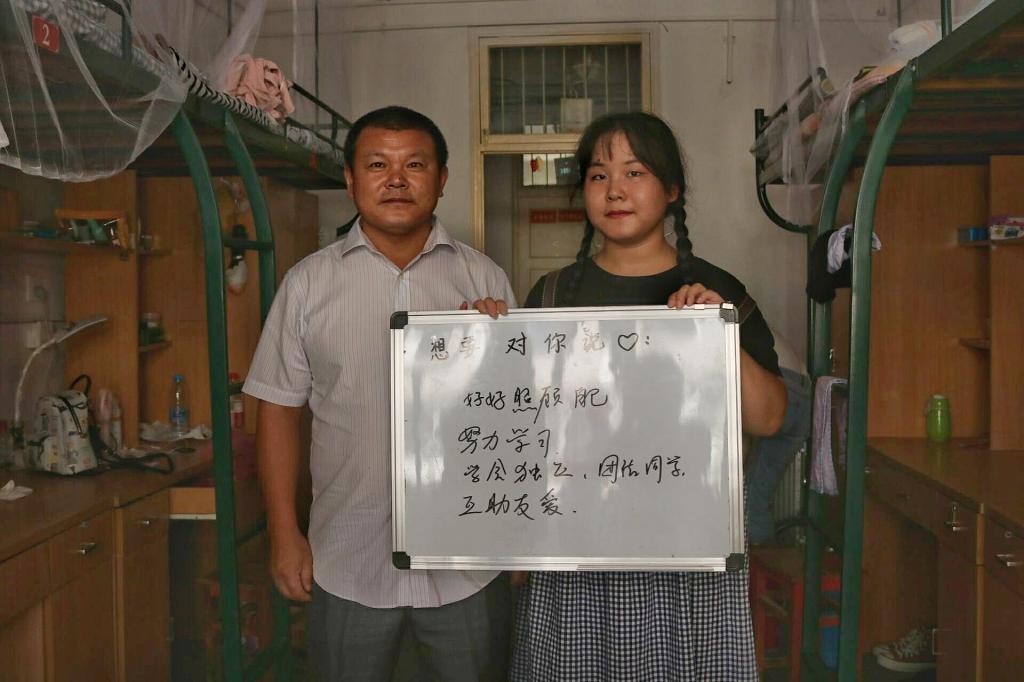 2
想要对你说♡:
好好照顾肥
努力学习
学会独立、团结同学
互助友爱.